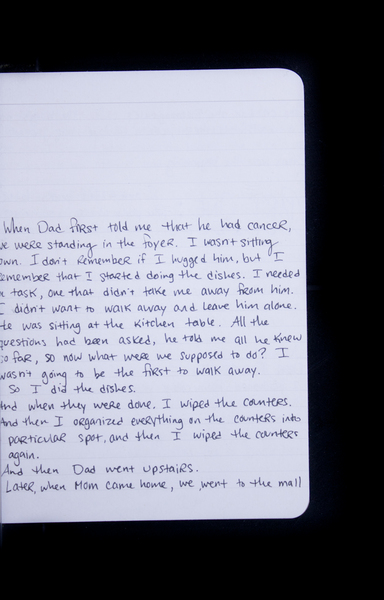 When Dad first told me that he had cancer,
we were standing in the foyer. I wasn't sitting
own. I don't remember if I hugged him, but I
emember that I started doing the dishes. I needed
a task, one that didn't take me away from him.
I didn't want to walk away and leave him alone.
He was sitting at the kitchen table. All the
questions had been asked, he told me all he knew
so far, so now what were we supposed to do? I
wasn't going to be the first to walk away.
So I did the dishes.
And when they were done. I wiped the counters.
And then I organized everything on the counters into
particular spot, and then I wiped the counters
again.
And then Dad went upstairs.
Later, when Mom came home, we went to the mall